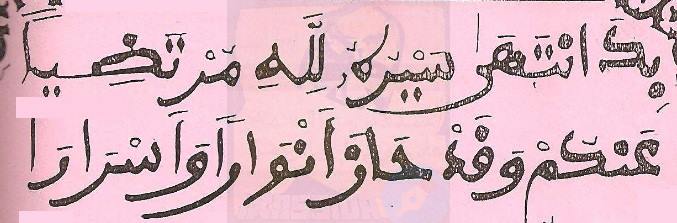 بِذَا انْتَهَى سَيْرُهُ لِلَّهِ مُرْتَضِيًا
عَنْكُمْ وَقَدْ حَازَ أَنْوَارًا وَأَسْرَارَا